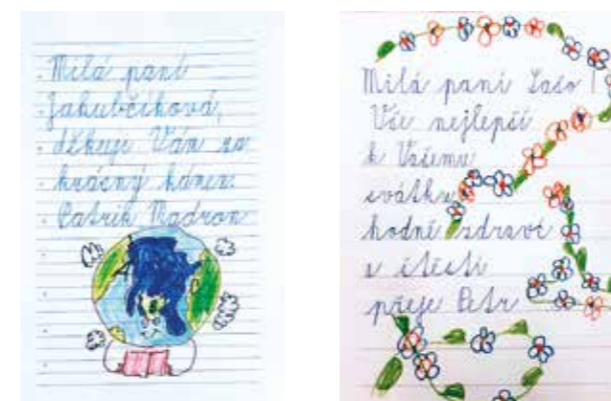 Milá paní
Jakubčíková,
děkuji Vám za
krásný
Patrik Madron
Milá paní
Vše nejlepší
k Vašemu
svátku
hodně zdraví
a štěstí
přeje Petr